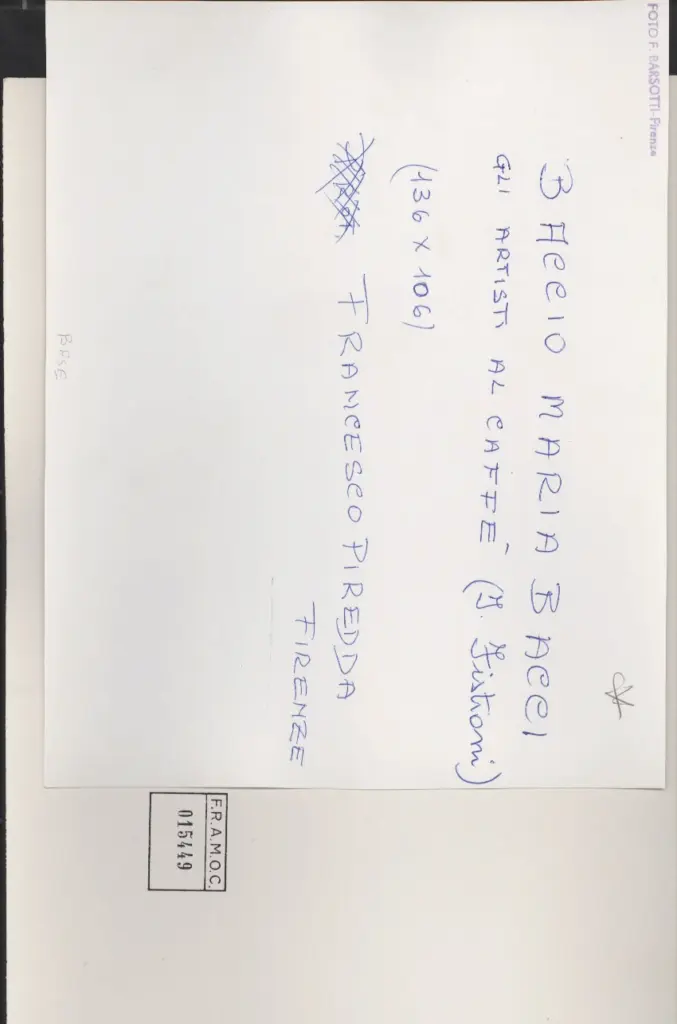 FOTO F. BARSOTTI-Firenze
BACCIO MARIA BACCI
GLI ARTISTI AL CAFFÈ (I. Fistioni)
(136 x 106)
FRANCESCO PIREDDA
FIRENZE
BASE
F.R.A.M.O.C.
015449